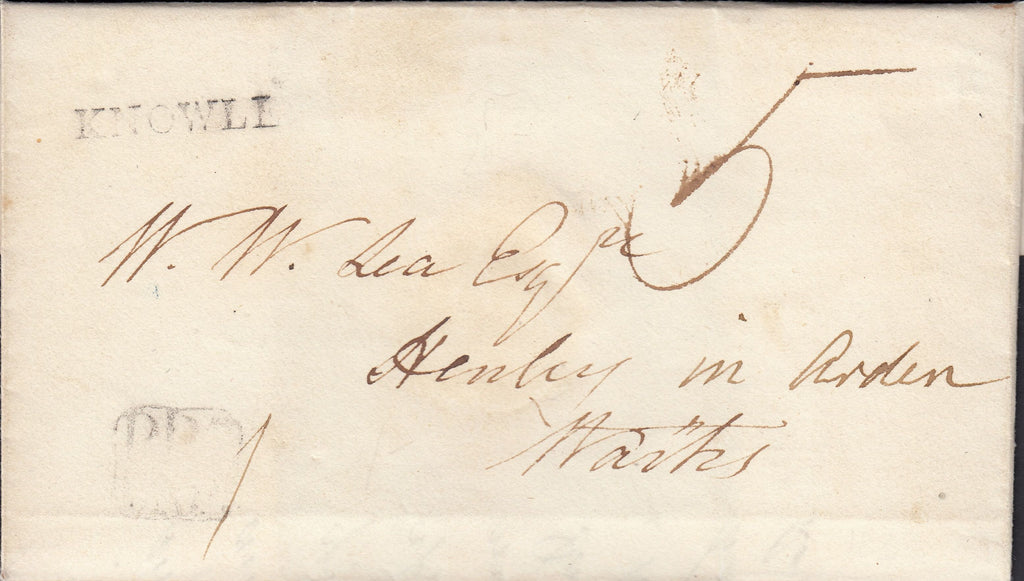 KNOWLE
5
W. W. Lea Esqre
Henley in Arden
Warks